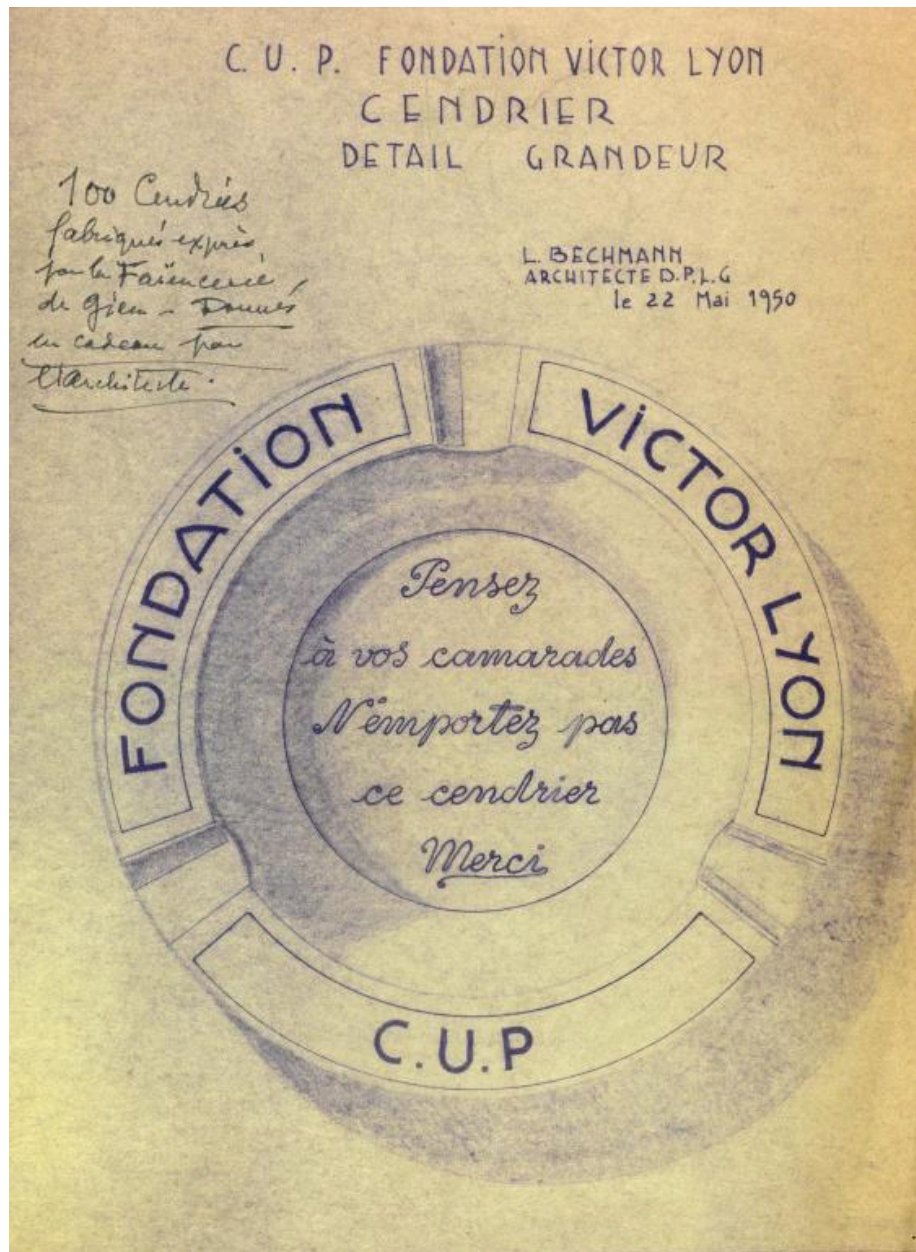 C. U. P. FONDATION VICTOR LYON
CENDRIER
DETAIL GRANDEUR
100 Cendriés
fabriqués exprès
par la Faïencerie
de Gien - Donnés
en cadeau par
l'Architecte.
L. BECHMANN
ARCHITECTE D.P.L.G
le 22 Mai 1950
FONDATION
VICTOR LYON
Pensez
à vos camarades
N'émportez pas
ce cendrier
Merci
C.U.P